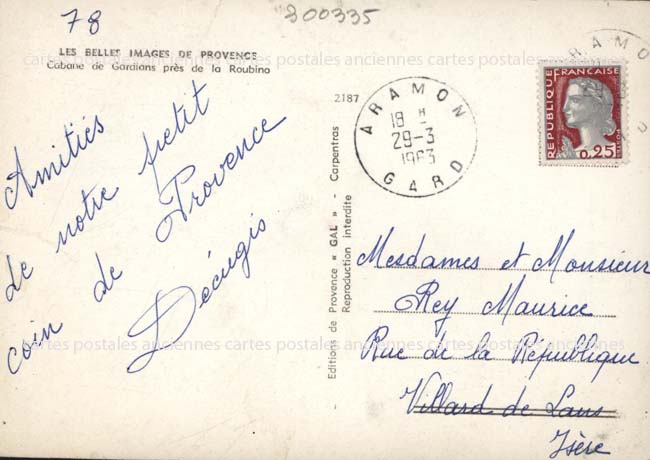 78
300335
LES BELLES IMAGES DE PROVENCE
Cabane de Gardians près de la Roubine
cartes postales anciennes cartes postales anciennes cartes postales anciennes
Amitiés
de notre petit
coin de Provence
Décugis
2187
Editions de Provence « GAL » - Carpentras
Reproduction interdite
ARAMON
18 H
29-3
1963
GARD
ARAMO
REPUBLIQUE FRANÇAISE
POSTES
0,25
Mesdames et Monsieur
Rey Maurice
Rue de la République
Villard de Lans
Isère
cartes postales anciennes cartes postales anciennes cartes postales anciennes